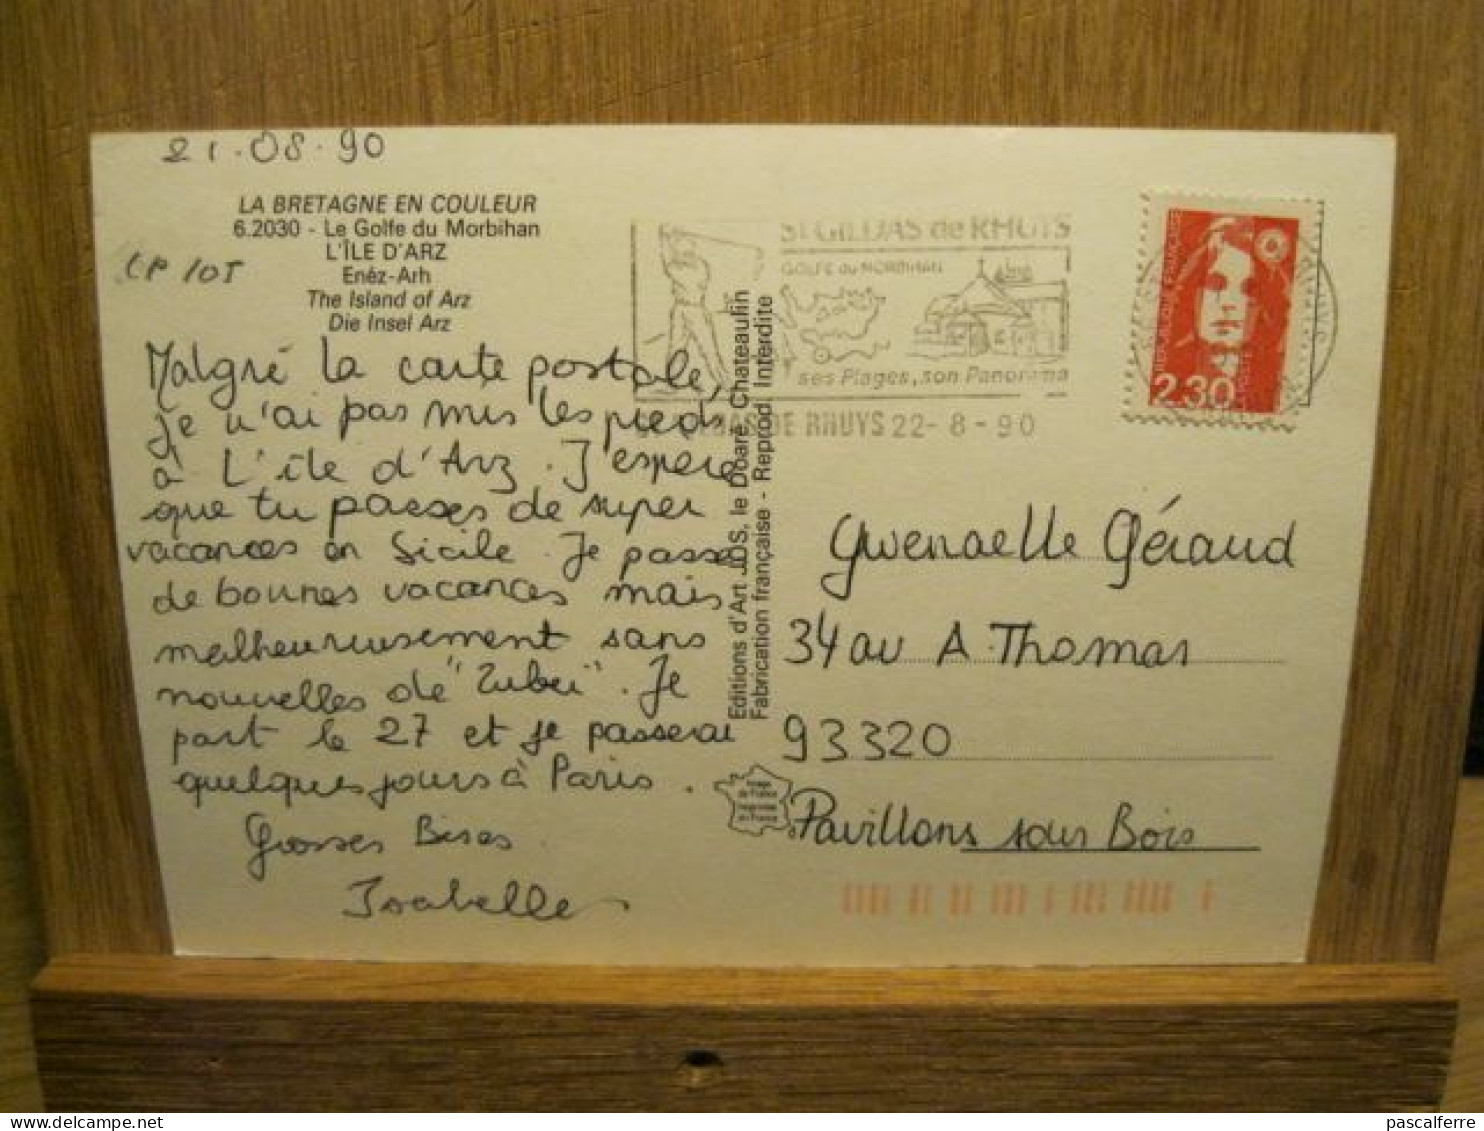 21.08.90
LA BRETAGNE EN COULEUR
6.2030 - Le Golfe du Morbihan
L'ÎLE D'ARZ
Enéz-Arh
The Island of Arz
Die Insel Arz
CP 105
Malgré la carte postale,
je n'ai pas mis les pieds
à L'île d'Arz. J'espère
que tu passes de super
vacances en Sicile. Je passe
de bonnes vacances mais
malheureusement sans
nouvelles de "Zubei". Je
part le 27 et je passerai
quelques jours à Paris.
Grosses Bises
Isabelle
Editions d'Art JOS, le Doaré, Chateaulin
Fabrication française - Reprod. Interdite
St GILDAS de RHUYS
GOLFE du MORBIHAN
ses Plages, son Panorama
St GILDAS DE RHUYS 22-8-90
2,30
Gwenaelle Géraud
34 av A. Thomas
93320
Pavillons sous Bois
pascalferre